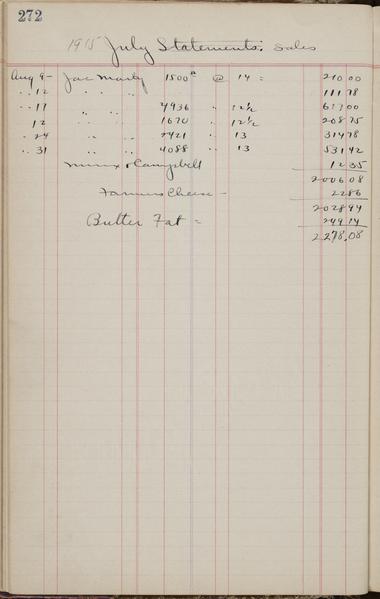 272
1915 July Statements: Sales
Aug 9- Jac Marty 1500# @ 14 = 210 00
" 12 " " " 111 78
" 17 " " 4936 " 12½ 617 00
12 " 1670 " 12½ 208 75
" 24 " " 2421 " 13 314 78
" 31 " " 4088 " 13 531 42
& Campbell 12 35
2006 08
Farmers Cheese - 22 86
2028 94
Butter Fat = 249 14
2278.08